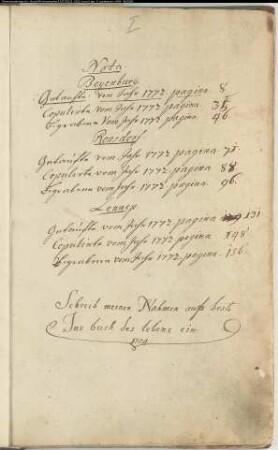 I
Nota
Beyenburg
Getaufte vom Jahr 1772 pagina 8
Copulirte vom Jahr 1772 pagina 35
Begrabene vom Jahr 1772 pagina 46
Ronsdorf
Getaufte vom Jahr 1772 pagina 71.
Copulirte vom Jahr 1772 pagina 88
Begrabene vom Jahr 1772 pagina 96.
Lennep
Getaufte vom Jahr 1772 pagina 131
Copulirte vom Jahr 1772 pagina 148
Begrabene vom Jahr 1772 pagina 156.
Schreib meinen Nahmen aufs best
Ins buch des lebens ein